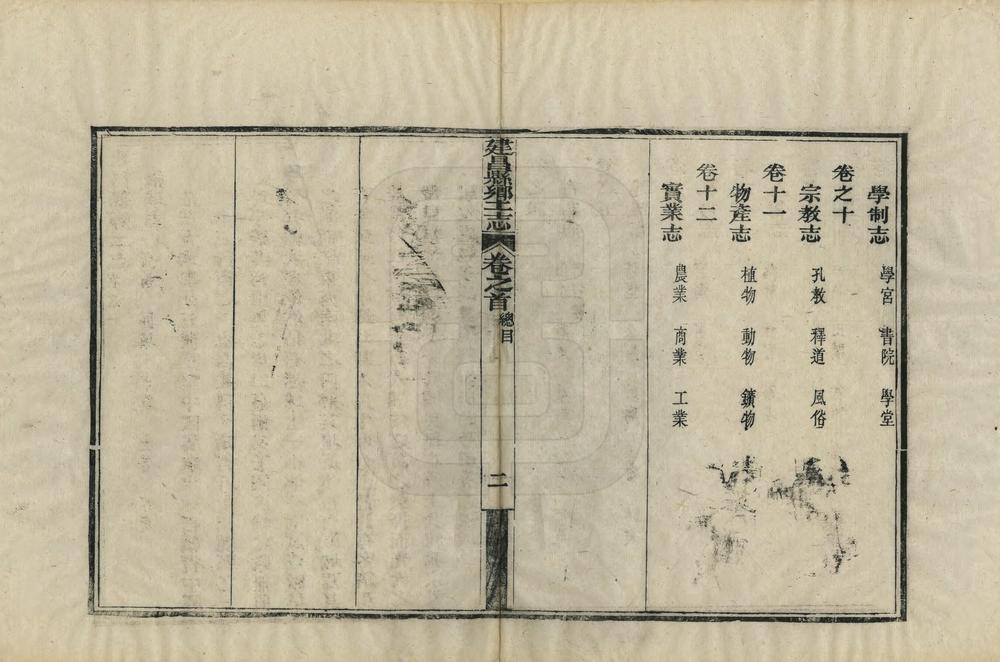 學制志 學宮 書院 學堂
卷之十
宗教志 孔教 釋道 風俗
卷十一
物產志 植物 動物 鑛物
卷十二
實業志 農業 商業 工業
建昌縣鄉土志 卷之首 總目 二